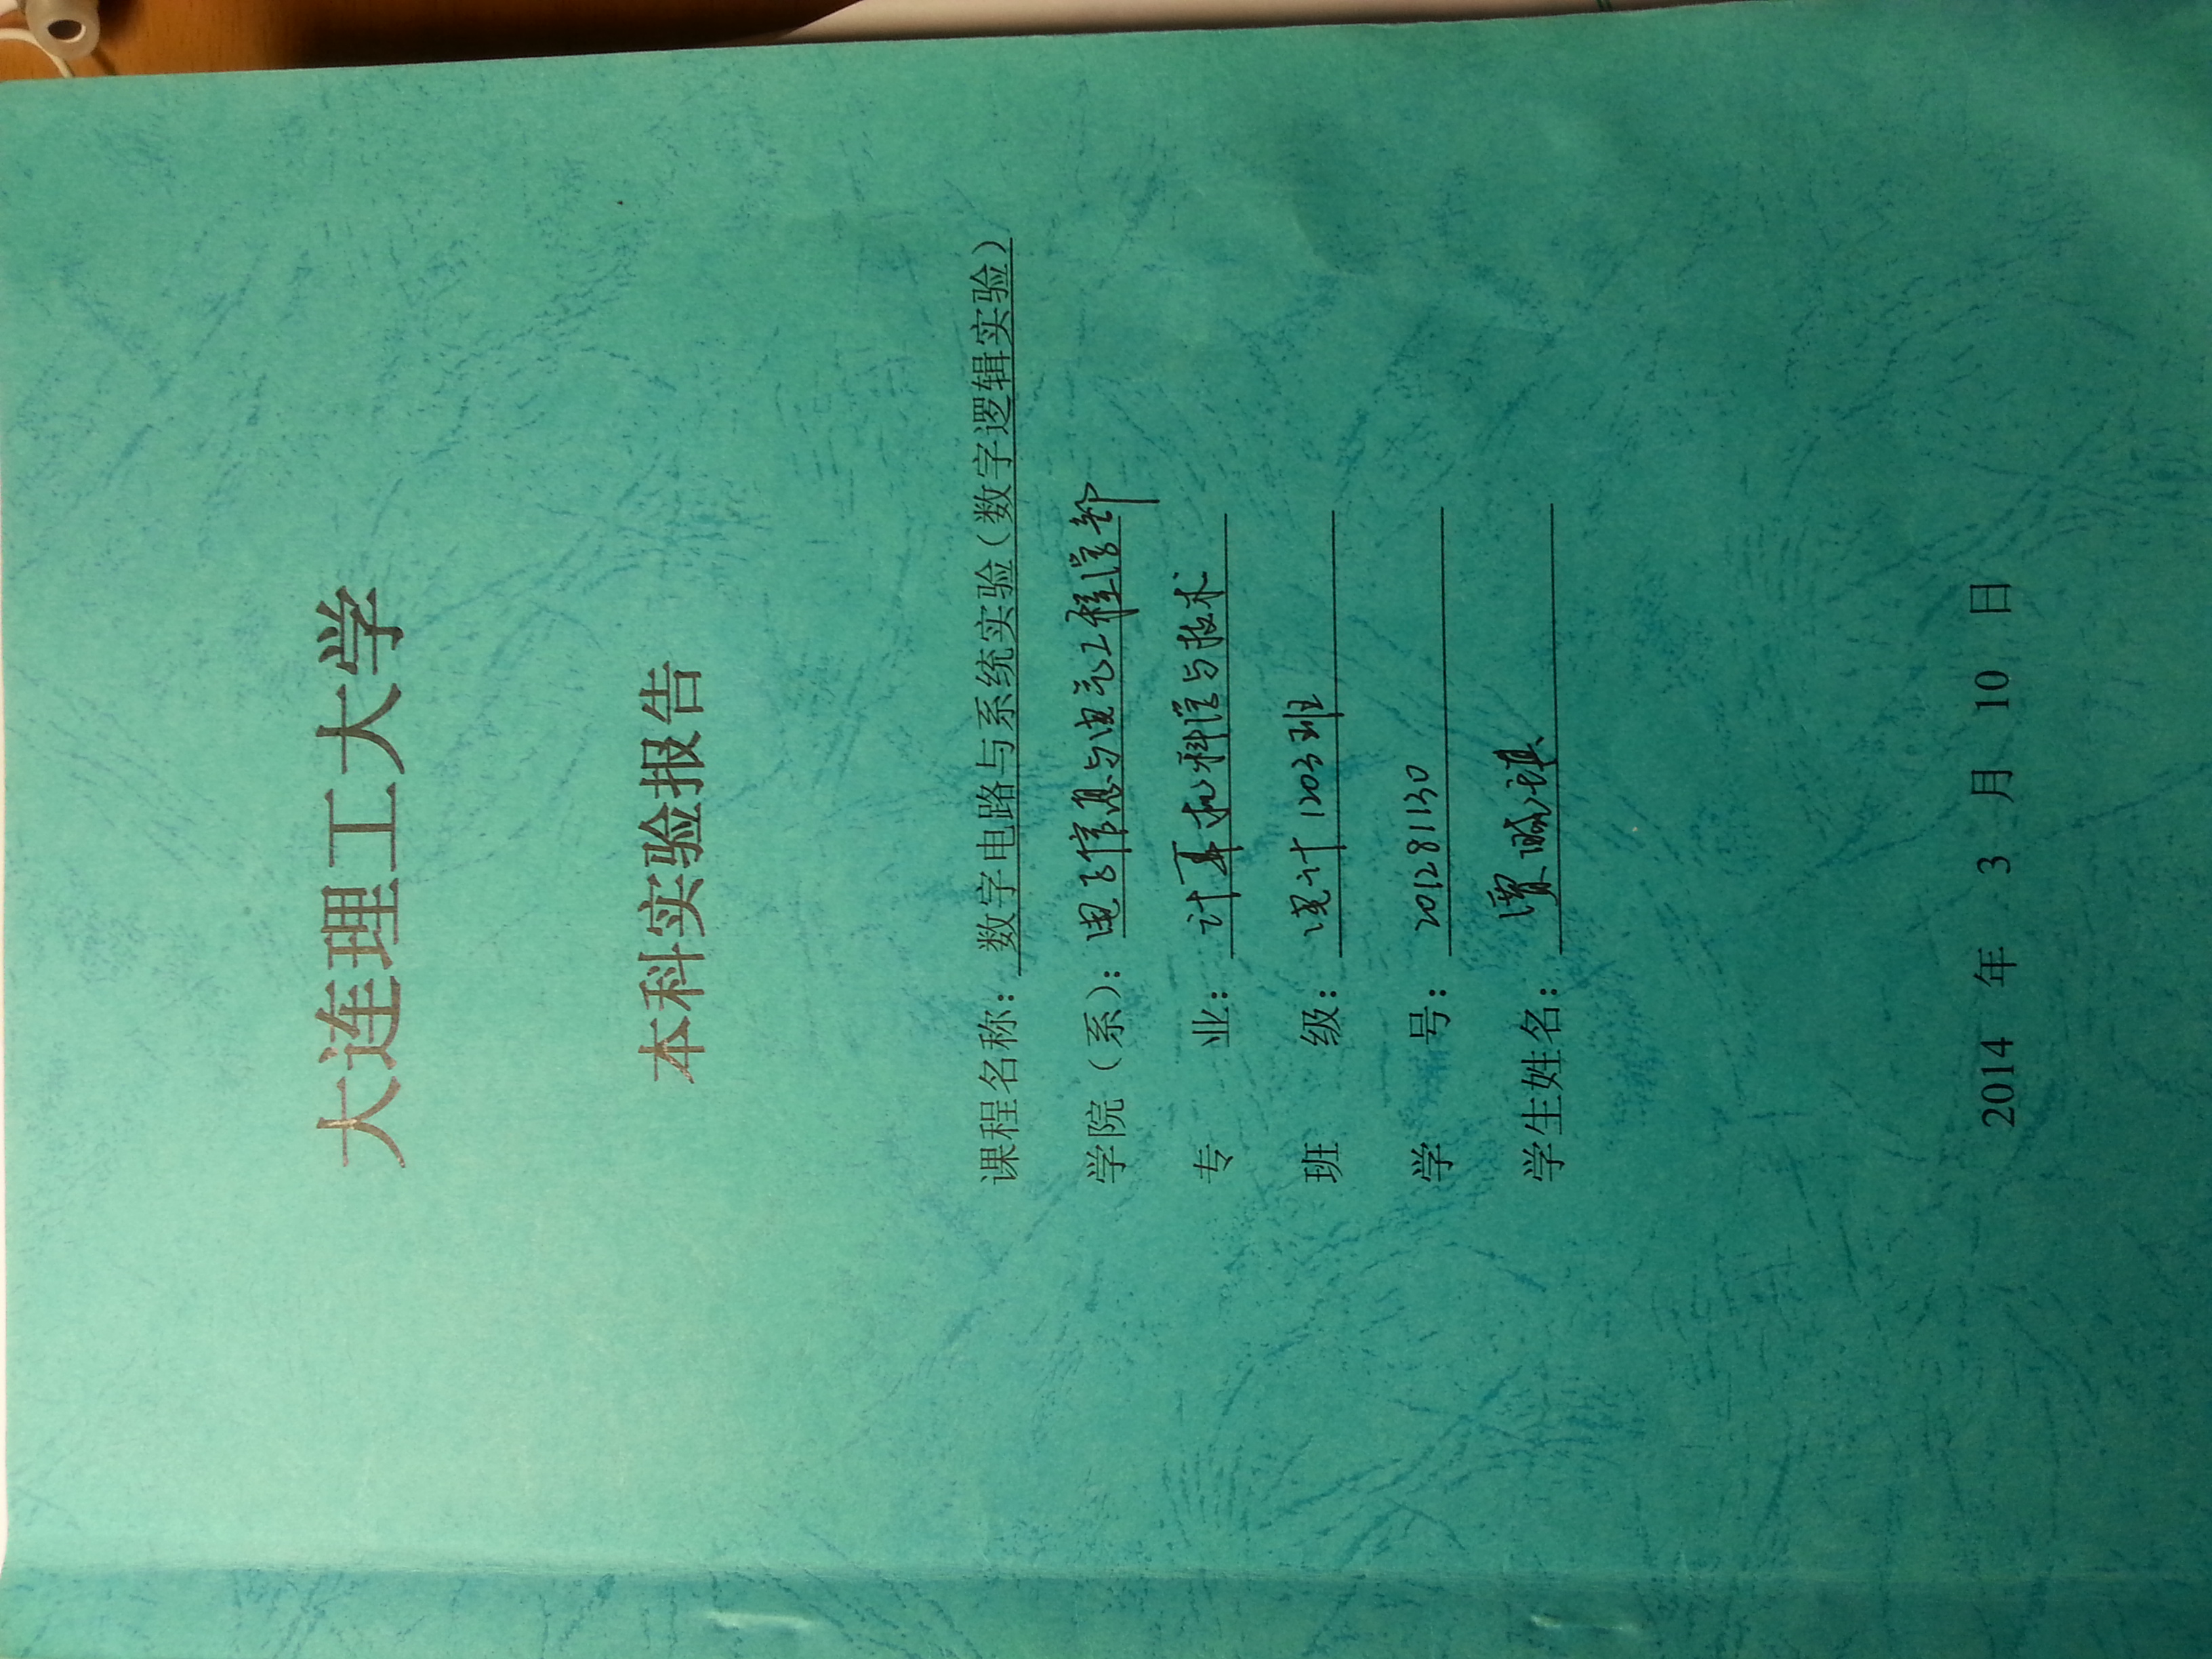 大连理工大学
本科实验报告
课程名称：数字电路与系统实验（数字逻辑实验）
学院（系）：电子信息与电气工程学部
专 业：计算机科学与技术
班 级：电计1203班
学 号：201281130
学生姓名：贾 琪
2014 年 3 月 10 日